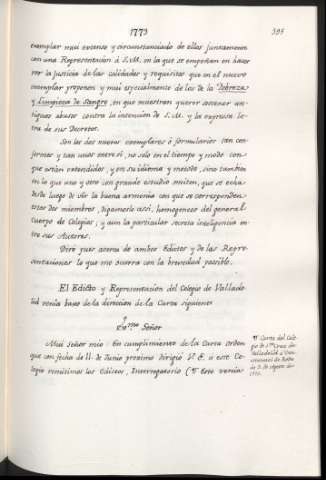 1773
395
exemplar mui extenso y circunstanciado de ellos juntamente
con una Representacion à S.M. en la que se empeñan en hacer
ver la justicia de las calidades y requisitos que en el nuevo
exemplar proponen y mui especialmente de los de la Pobreza
y Limpieza de Sangre, en que muestran querer sostener an-
tiguos abusos contra la intencion de S.M. y la expresa le-
tra de sus Decretos.
Son los dos nuevos exemplares ò formularios tan con-
formes y tan unos entre sí, no solo en el tiempo y modo con-
que están extendidos, y en su idioma y methodo, sino tambien
en lo que uno y otro con grande estudio omiten, que se echa
desde luego de vèr la buena armonia con que se corresponden
estos dos miembros, digamoslo assi, homogeneos del general
cuerpo de Colegios, y aun la particular secreta inteligencia en-
tre sus Autores.
Diré pues acerca de ambos Edictos y de las Repre-
sentaciones lo que me ocurra con la brevedad posible.
El Edicto y Representacion del Colegio de Vallado-
lid venia baxo de la direccion de la Carta siguiente
Exmo Señor
Mui Señor mio: En cumplimiento de la Carta orden
que con fecha de 11 de Junio proximo dirigió V. E. à este Co-
legio remitimos los Edictos, Interrogatorio (¶ Este venia
¶ Carta del Cole-
gio de Sta Cruz de
Valladolid
de Agosto de